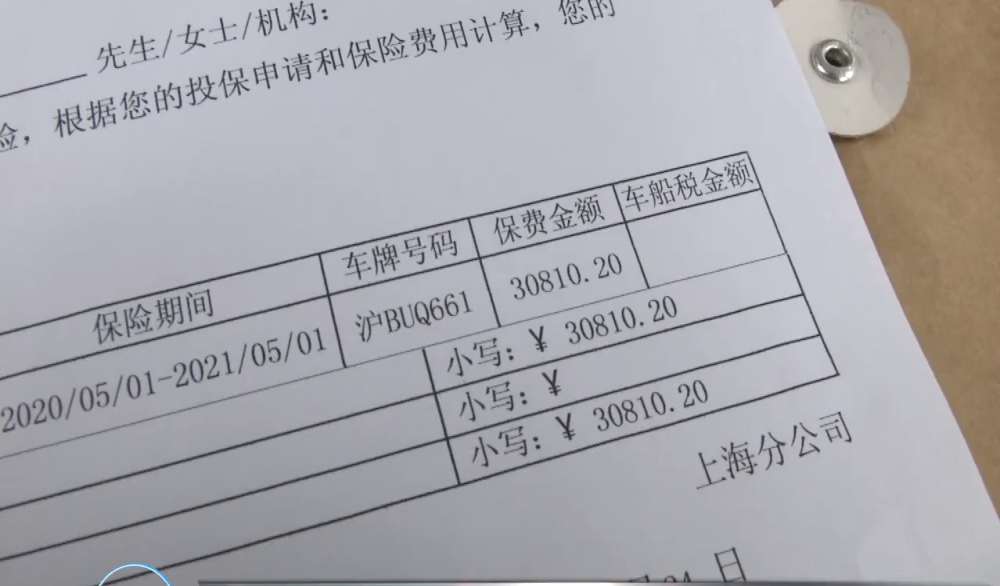 先生/女士/机构:
险, 根据您的投保申请和保险费用计算, 您的
保险期间 车牌号码 保费金额 车船税金额
2020/05/01-2021/05/01 沪BUQ661 30810.20
小写: ¥ 30810.20
小写: ¥
小写: ¥ 30810.20
上海分公司
日